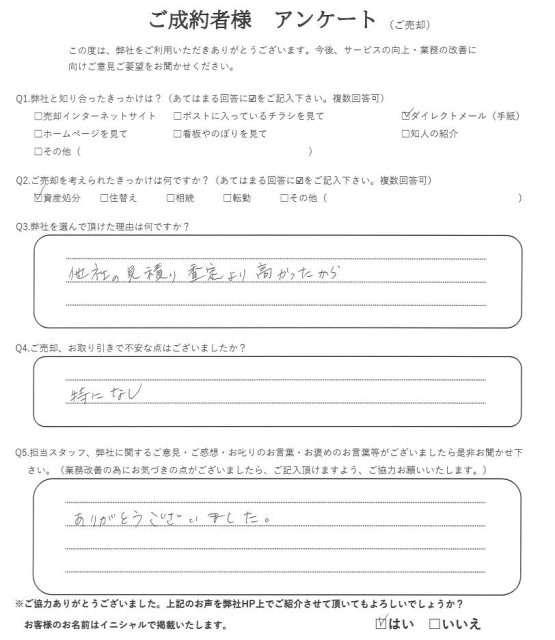 ご成約者様 アンケート（ご売却）
この度は、弊社をご利用いただきありがとうございます。今後、サービスの向上・業務の改善に
向けご意見ご要望をお聞かせください。
Q1.弊社と知り合ったきっかけは？（あてはまる回答に☑をご記入下さい。複数回答可）
☐売却インターネットサイト ☐ポストに入っているチラシを見て ☑ダイレクトメール（手紙）
☐ホームページを見て ☐看板やのぼりを見て ☐知人の紹介
☐その他（ ）
Q2.ご売却を考えられたきっかけは何ですか？（あてはまる回答に☑をご記入下さい。複数回答可）
☑資産処分 ☐住替え ☐相続 ☐転勤 ☐その他（ ）
Q3.弊社を選んで頂けた理由は何ですか？
他社の見積り査定より高かったから
Q4.ご売却、お取り引きで不安な点はございましたか？
特になし
Q5.担当スタッフ、弊社に関するご意見・ご感想・お叱りのお言葉・お褒めのお言葉等がございましたら是非お聞かせ下
さい。（業務改善の為にお気づきの点がございましたら、ご記入頂けますよう、ご協力お願いいたします。）
ありがとうございました。
※ご協力ありがとうございました。上記のお声を弊社HP上でご紹介させて頂いてもよろしいでしょうか？
お客様のお名前はイニシャルで掲載いたします。 ☑はい ☐いいえ